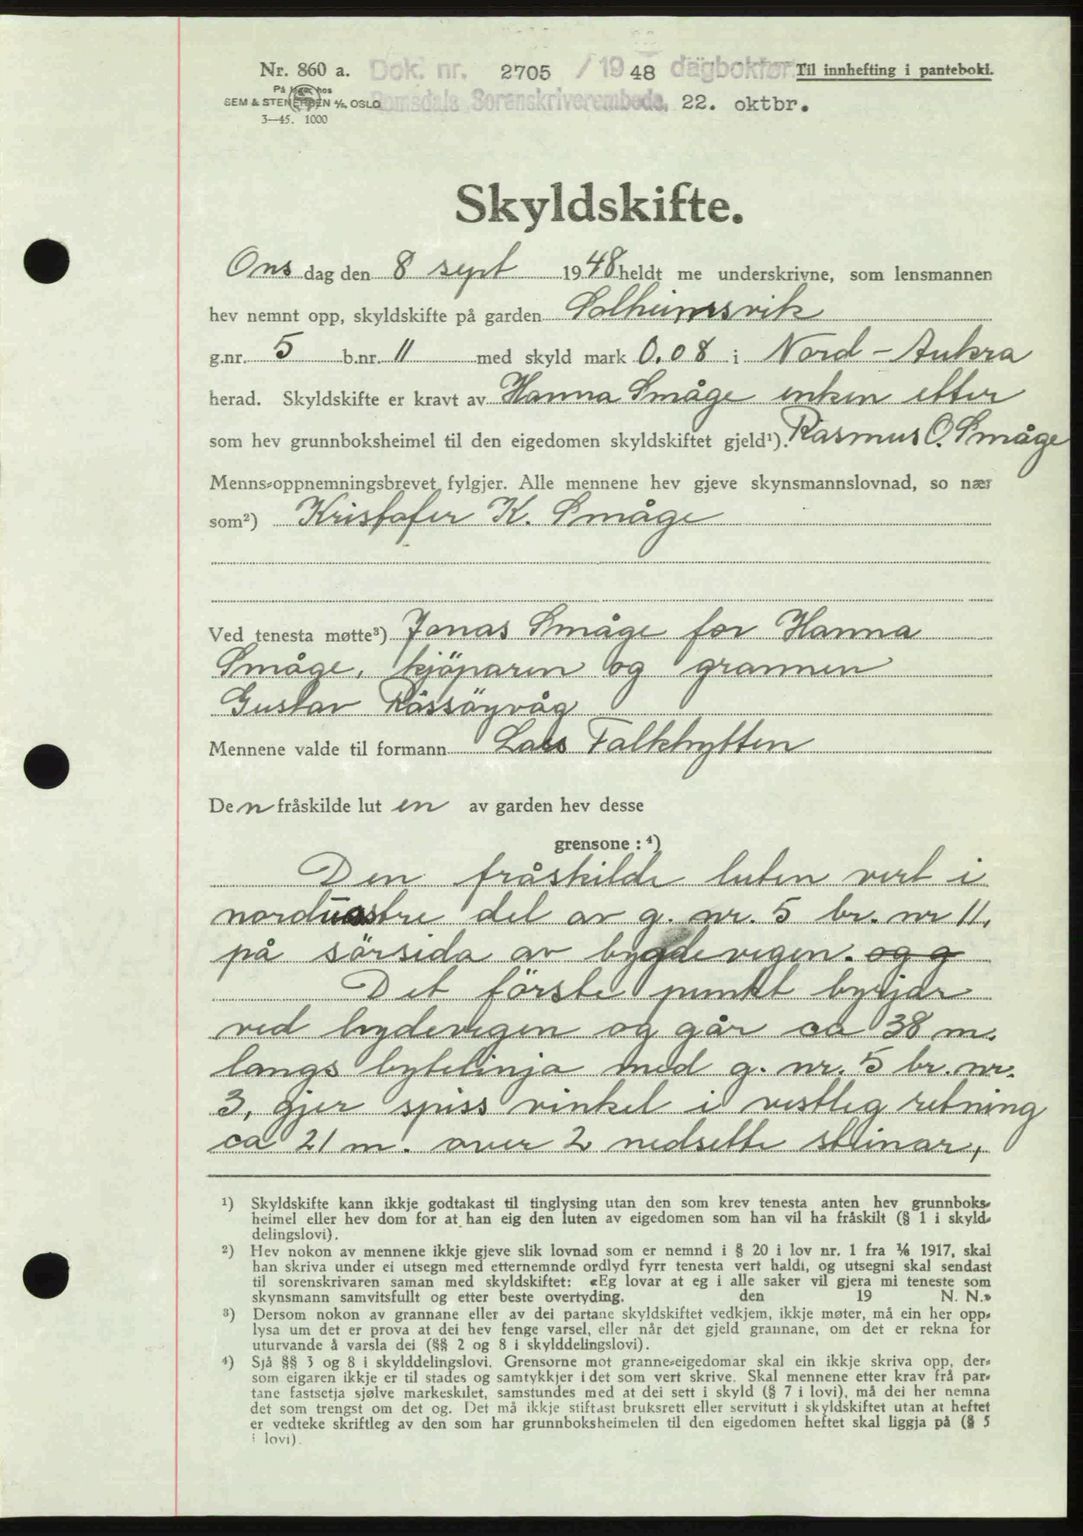 Nr. 860 a. Dok. nr. 2705 / 19 48 dagbokfør Til innhefting i panteboki.
På lager hos
SEM & STENERSEN A/S, OSLO Romsdals Sorenskriverembede, 22. oktbr.
3—45. 1000
Skyldskifte.
Ons dag den 8 sept 1948 heldt me underskrivne, som lensmannen
hev nemnt opp, skyldskifte på garden Solheimsvik
g.nr. 5 b.nr. 11 med skyld mark 0.08 i Nord-Aukra
herad. Skyldskifte er kravt av Hanna Småge enken etter
som hev grunnboksheimel til den eigedomen skyldskiftet gjeld¹). Rasmus O. Småge
Menns-oppnemningsbrevet fylgjer. Alle mennene hev gjeve skynsmannslovnad, so nær
som²) Kristofer K. Småge
Ved tenesta møtte³) Jonas Småge for Hanna
Småge, kjöparen og grannen
Gustav Rössöyvåg
Mennene valde til formann Lars Falkhytten
Den fråskilde lut en av garden hev desse
grensone : ⁴)
Den fråskilde luten vert i
nord stre del av g. nr. 5 br. nr 11,
på sörsida av bygdevegen. og g
Det förste punkt byrjar
ved bydevegen og går ca 38 m.
langs bytelinja med g. nr. 5 br. nr.
3, gjer spiss vinkel i vestleg retning
ca 21 m. over 2 nedsette steinar,
¹) Skyldskifte kann ikkje godtakast til tinglysing utan den som krev tenesta anten hev grunnboks-
heimel eller hev dom for at han eig den luten av eigedomen som han vil ha fråskilt (§ 1 i skyld-
delingslovi).
²) Hev nokon av mennene ikkje gjeve slik lovnad som er nemnd i § 20 i lov nr. 1 fra ⅛ 1917, skal
han skriva under ei utsegn med etternemnde ordlyd fyrr tenesta vert haldi, og utsegni skal sendast
til sorenskrivaren saman med skyldskiftet: «Eg lovar at eg i alle saker vil gjera mi teneste som
skynsmann samvitsfullt og etter beste overtyding. den 19 N. N.»
³) Dersom nokon av grannane eller av dei partane skyldskiftet vedkjem, ikkje møter, må ein her opp-
lysa um det er prova at dei hev fenge varsel, eller når det gjeld grannane, om det er rekna for
uturvande å varsla dei (§§ 2 og 8 i skylddelingslovi).
⁴) Sjå §§ 3 og 8 i skylddelingslovi. Grensorne mot granne-eigedomar skal ein ikkje skriva opp, der-
som eigaren ikkje er til stades og samtykkjer i det som vert skrive. Skal mennene etter krav frå par-
tane fastsetja sjølve markeskilet, samstundes med at dei sett i skyld (§ 7 i lovi), må dei her nemna
det som trengst om det og. Det må ikkje stiftast bruksrett eller servitutt i skyldskiftet utan at heftet
er vedteke skriftleg av den som har grunnboksheimelen til den eigedomen heftet skal liggja på (§ 5
i lovi).